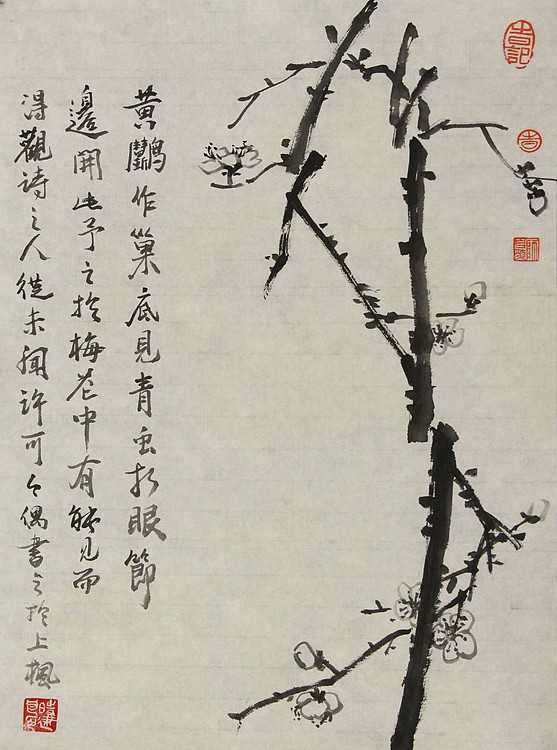 黄鸝作巢底見青虫於眼節
邊開此予之於梅花中有能見而
得觀詩之人從未聞許可今偶書之於上楓